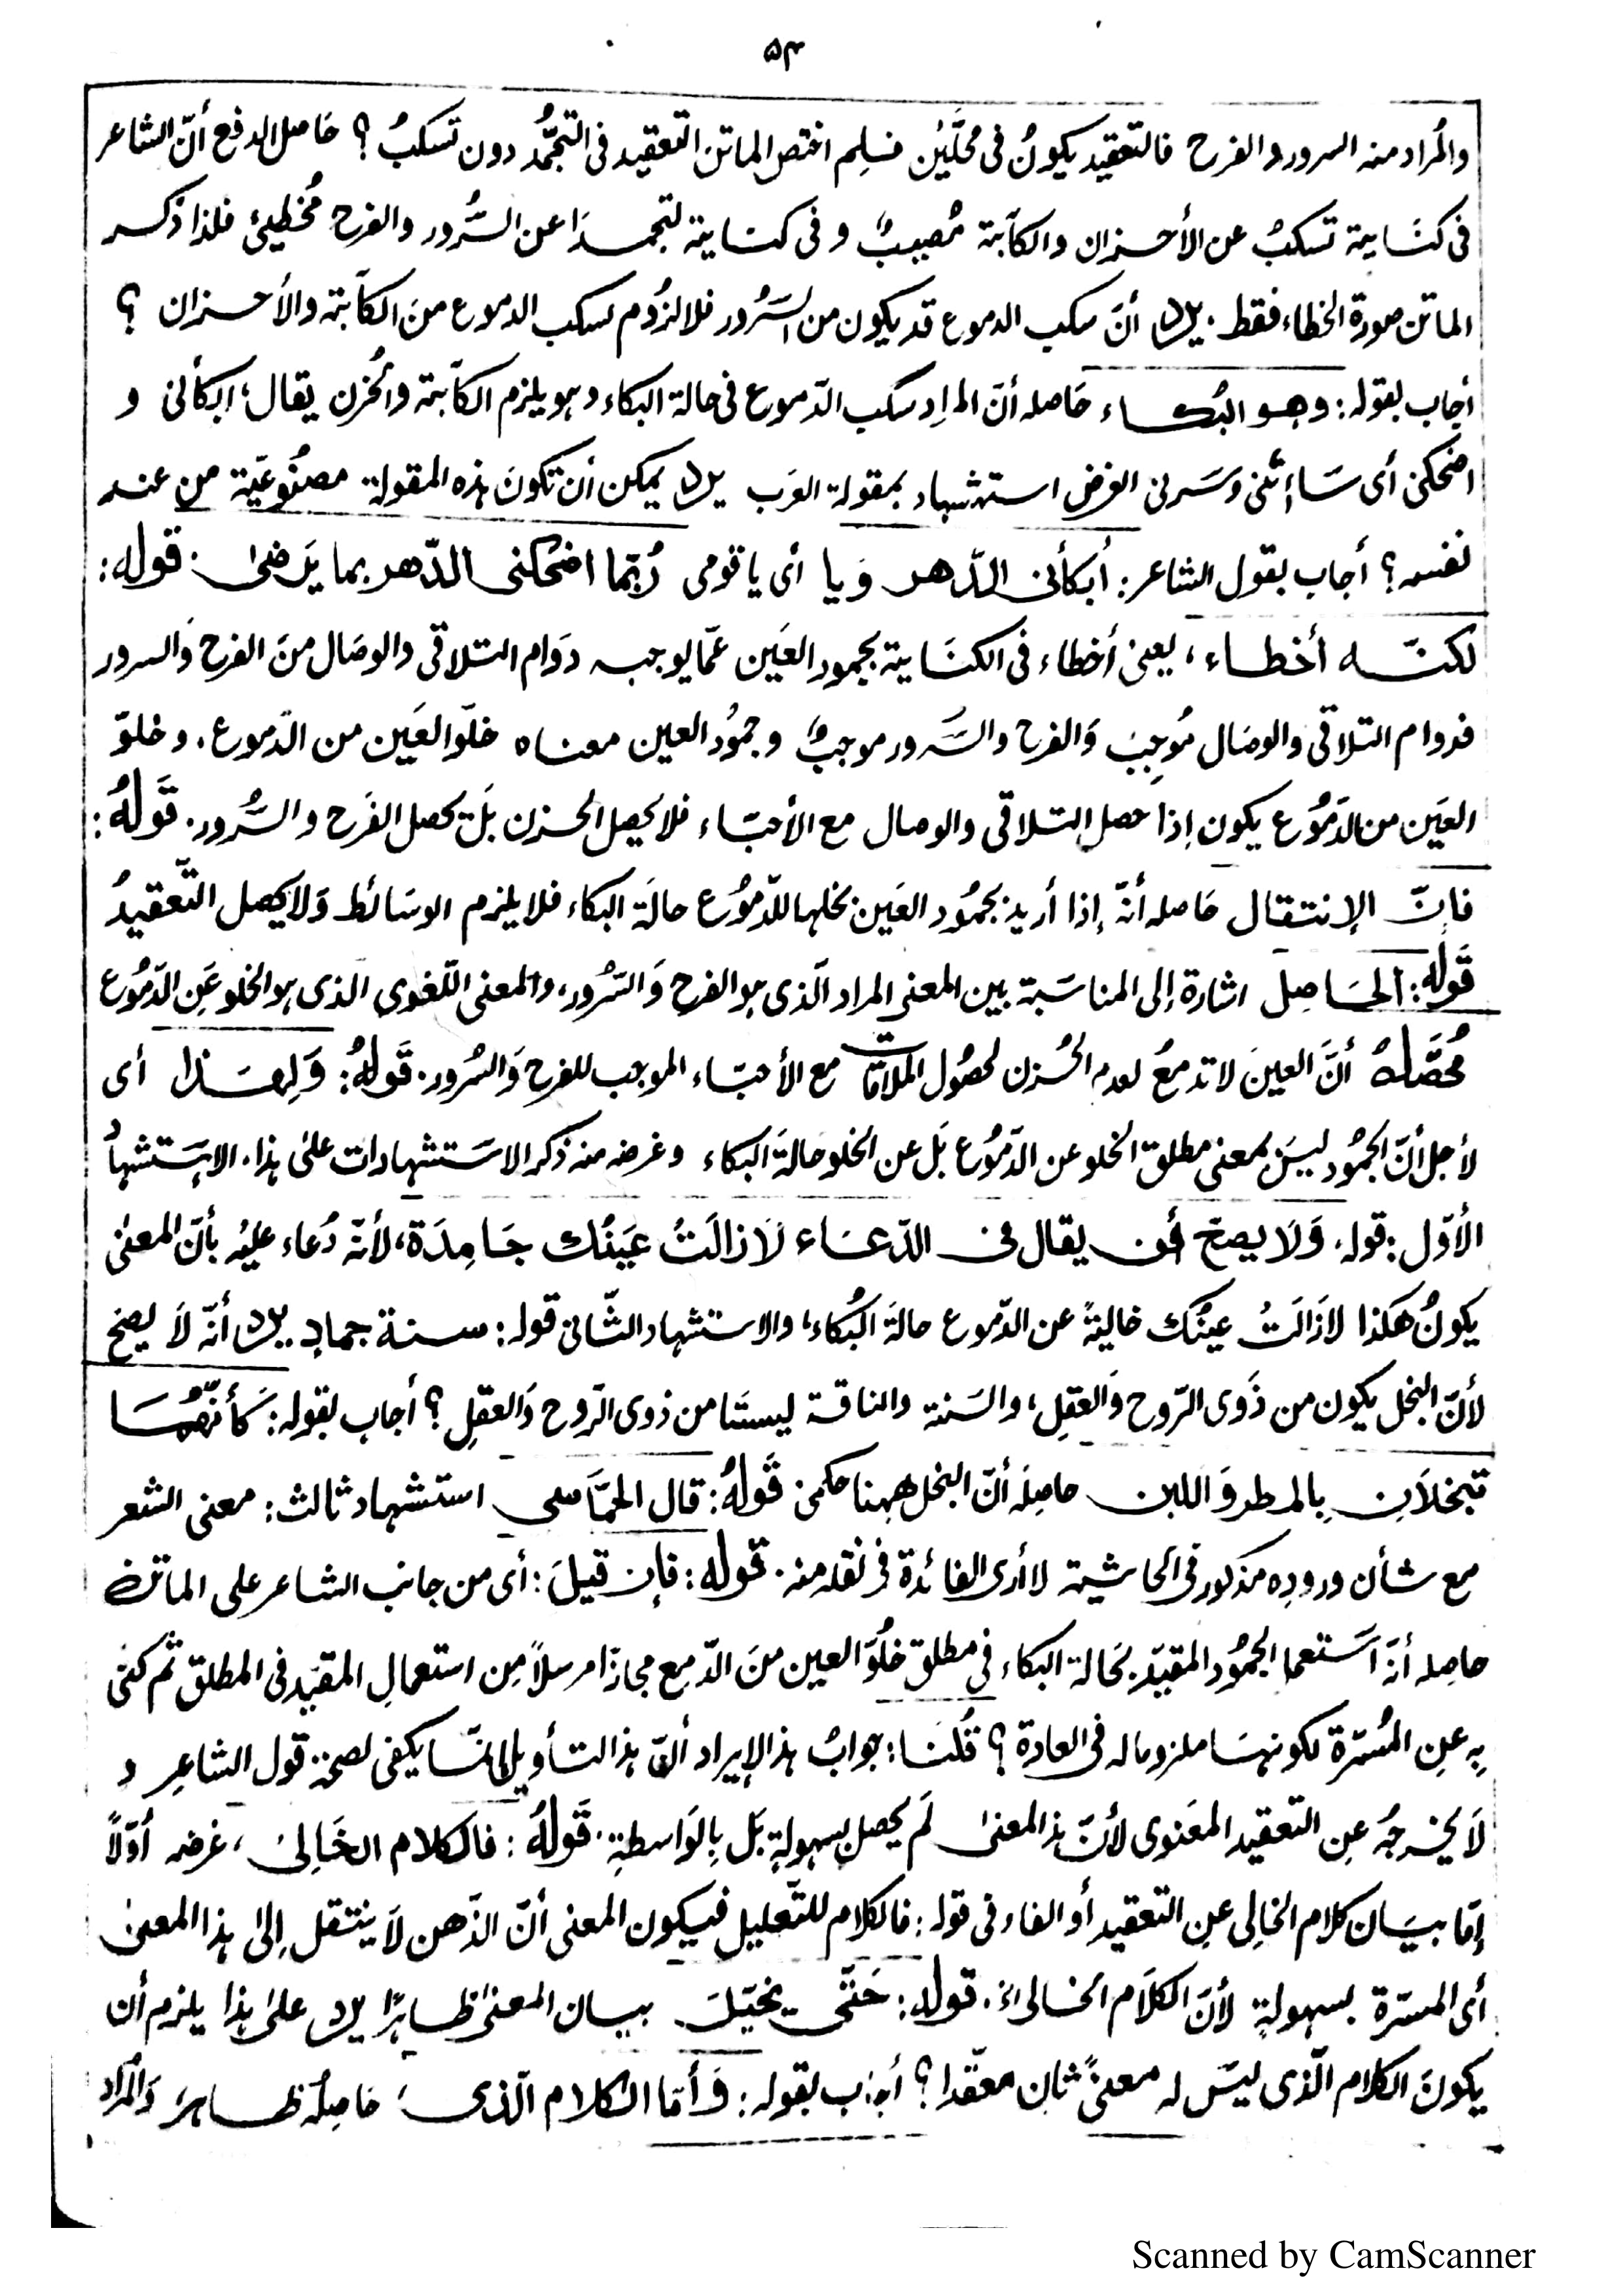 ۵۴
والمُراد منه السرور والفرح فالتعقيد يكونُ فى محلَّيْن فلِم اختص الماتن التعقيد فى التجمُّد دون تسكبُ؟ حَاصل الدفع أنّ الشاعر
فى كنَاية تسكبُ عن الأحزان والكآبة مُصيبٌ و فى كناية لتجمدَا عن السُّرور والفرح مُخطِئ فلذا ذكر
الماتن صورة الخطاء فقط. يرد أنّ سكب الدموع قد يكون من السَّرُور فلا لزُوم لسكب الدموع منَ الكآبة والأحزان ؟
أجاب بقوله: وهو البُكاء حَاصله أنّ المراد سكب الدّموع فى حالة البكاء وهو يلزم الكآبة والحُزن يقال؛ ابكأنى و
اضحكنى أى سَاءنى وَسَرنى الغرض استشهاد بمقولة العَرب يرد يمكن أن تكونَ هذه المقولة مصنُوعيّة من عند
نفسه؟ أجاب بقول الشاعر: أُبكأنى الدّهر وَيا أى يا قومى رُبّما اضحكنى الدّهر بما يَرضىٰ. قوله:
لكنّه أخطاء، يعنى أخطاء فى الكنَاية بجمود العَين عمّا يوجبه دوَام التلاقى والوصَال منَ الفرح وَالسرور
فدوام التلاقى والوصَال مُوجِبَ وَالفرح والسَّرور موجبٌ وجمُود العين معناه خلّو العَين من الدّموع. وخلوّ
العَين من الدّمُوع يكون إذا حصل التلاقى والوصال مع الأحبّاء فلا يحصل الحزن بَل يحصل الفَرح والسُّرور. قَولهُ:
فإنّ الإنتقال حَاصله أنّه إذا أريد بجمُود العَين بخلها للدّمُوع حالَة البكاء فلا يلزم الوسَائط وَلا يحصل التَّعقيدُ
قَوله: الحَاصِل اشارة إلى المناسَبة بين المعنى المراد الّذى هو الفرح وَالسّرُور، والمعنى اللّغوى الذى هو الخلو عَن الدّمُوع
مُحصَّلهُ أنَّ العينَ لا تدمعُ لعدم الحُزن لحصُول الملاقات مع الأحبّاء الموجب للفرح وَالسُرور. قَولهُ: وَلِهٰذا أى
لأجل أنّ الجمُود ليسَ بمعنى مطلق الخلو عن الدّمُوع بَل عن الخلو حالةَ البكاء وغرضه منه ذكر الاستَشهادات علىٰ هذا. الاستَشهادُ
الأوّل: قوله، وَلَا يصحّ أن يقال فى الدّعَاء لَا زالَتْ عَينُك جَامِدَة، لأنّه دُعاء عليْه بأنّ المعنىٰ
يكونُ هكذا لا زَالَتْ عينُك خاليةً عن الدّموع حالةَ البُكاء؛ والاستشهاد الثّانى قوله: سنة جمادٍ يرد أنّه لَا يصحّ
لأنّ البخل يكون من ذَوى الرّوح وَالعقِل؛ والسَنة والناقة ليستَا من ذوى الرّوح وَالعقلِ؟ أجاب بقوله: كَأنّهُمَا
تبخلَانِ بِالمطر وَ اللبن حاصِلَه أنّ البخل ههنا حكمىٌ قَولهُ: قال الحمَّاسى استشهاد ثالث: معنى الشعر
مع شأن ورودِه مذكور فى الحاشية لا أرى الفائدة فى نقله منه. قوله: فإن قيلَ: أى من جانب الشاعر على الماتن
حاصِله أنّه استَعمل الجمُود المقيّد بحَالة البكاء فى مطلق خُلوّ العين منَ الدّمع مجازًا مرسلًا مِن استعمالِ المقيَد فى المطلق ثُم كنىٰ
بِه عنِ المُسرّة لكونهَا ملزومًا له فى العادة؟ قُلنَا: جوابُ هذ الإيراد أنّ هذ التأويل إنّما يكفى لصحة قول الشاعِر و
لَا يخرجهُ عنِ التعقيد المعَنوى لأنّ هذ المعنىٰ لَم يحصل بسهولةٍ بَل بِالوَاسطةِ. قَولهُ: فالكلام الخَالِىْ، غرضه أوّلًا
إمّا بيَان كلام الخالِى عنِ التعقيد أو الفاء فى قوله: فالكلام للتّعليل فيكون المعنى أنّ الذّهن لَا ينتقل إلىٰ هذا المعنىٰ
أى المسرّة بسهولةٍ لأنّ الكلَام الخالى الخ. قوله: حَتّى يخيّلَ بيان المعنىٰ ظاهرًا يرد علىٰ هذا يلزم أن
يكونَ الكلام الّذى ليسَ له معنىً ثانٍ معقّدا؟ أجاب بقوله: وَأمّا الكلام الّذى حَاصِلُه ظاهر وَالمُراد
Scanned by CamScanner